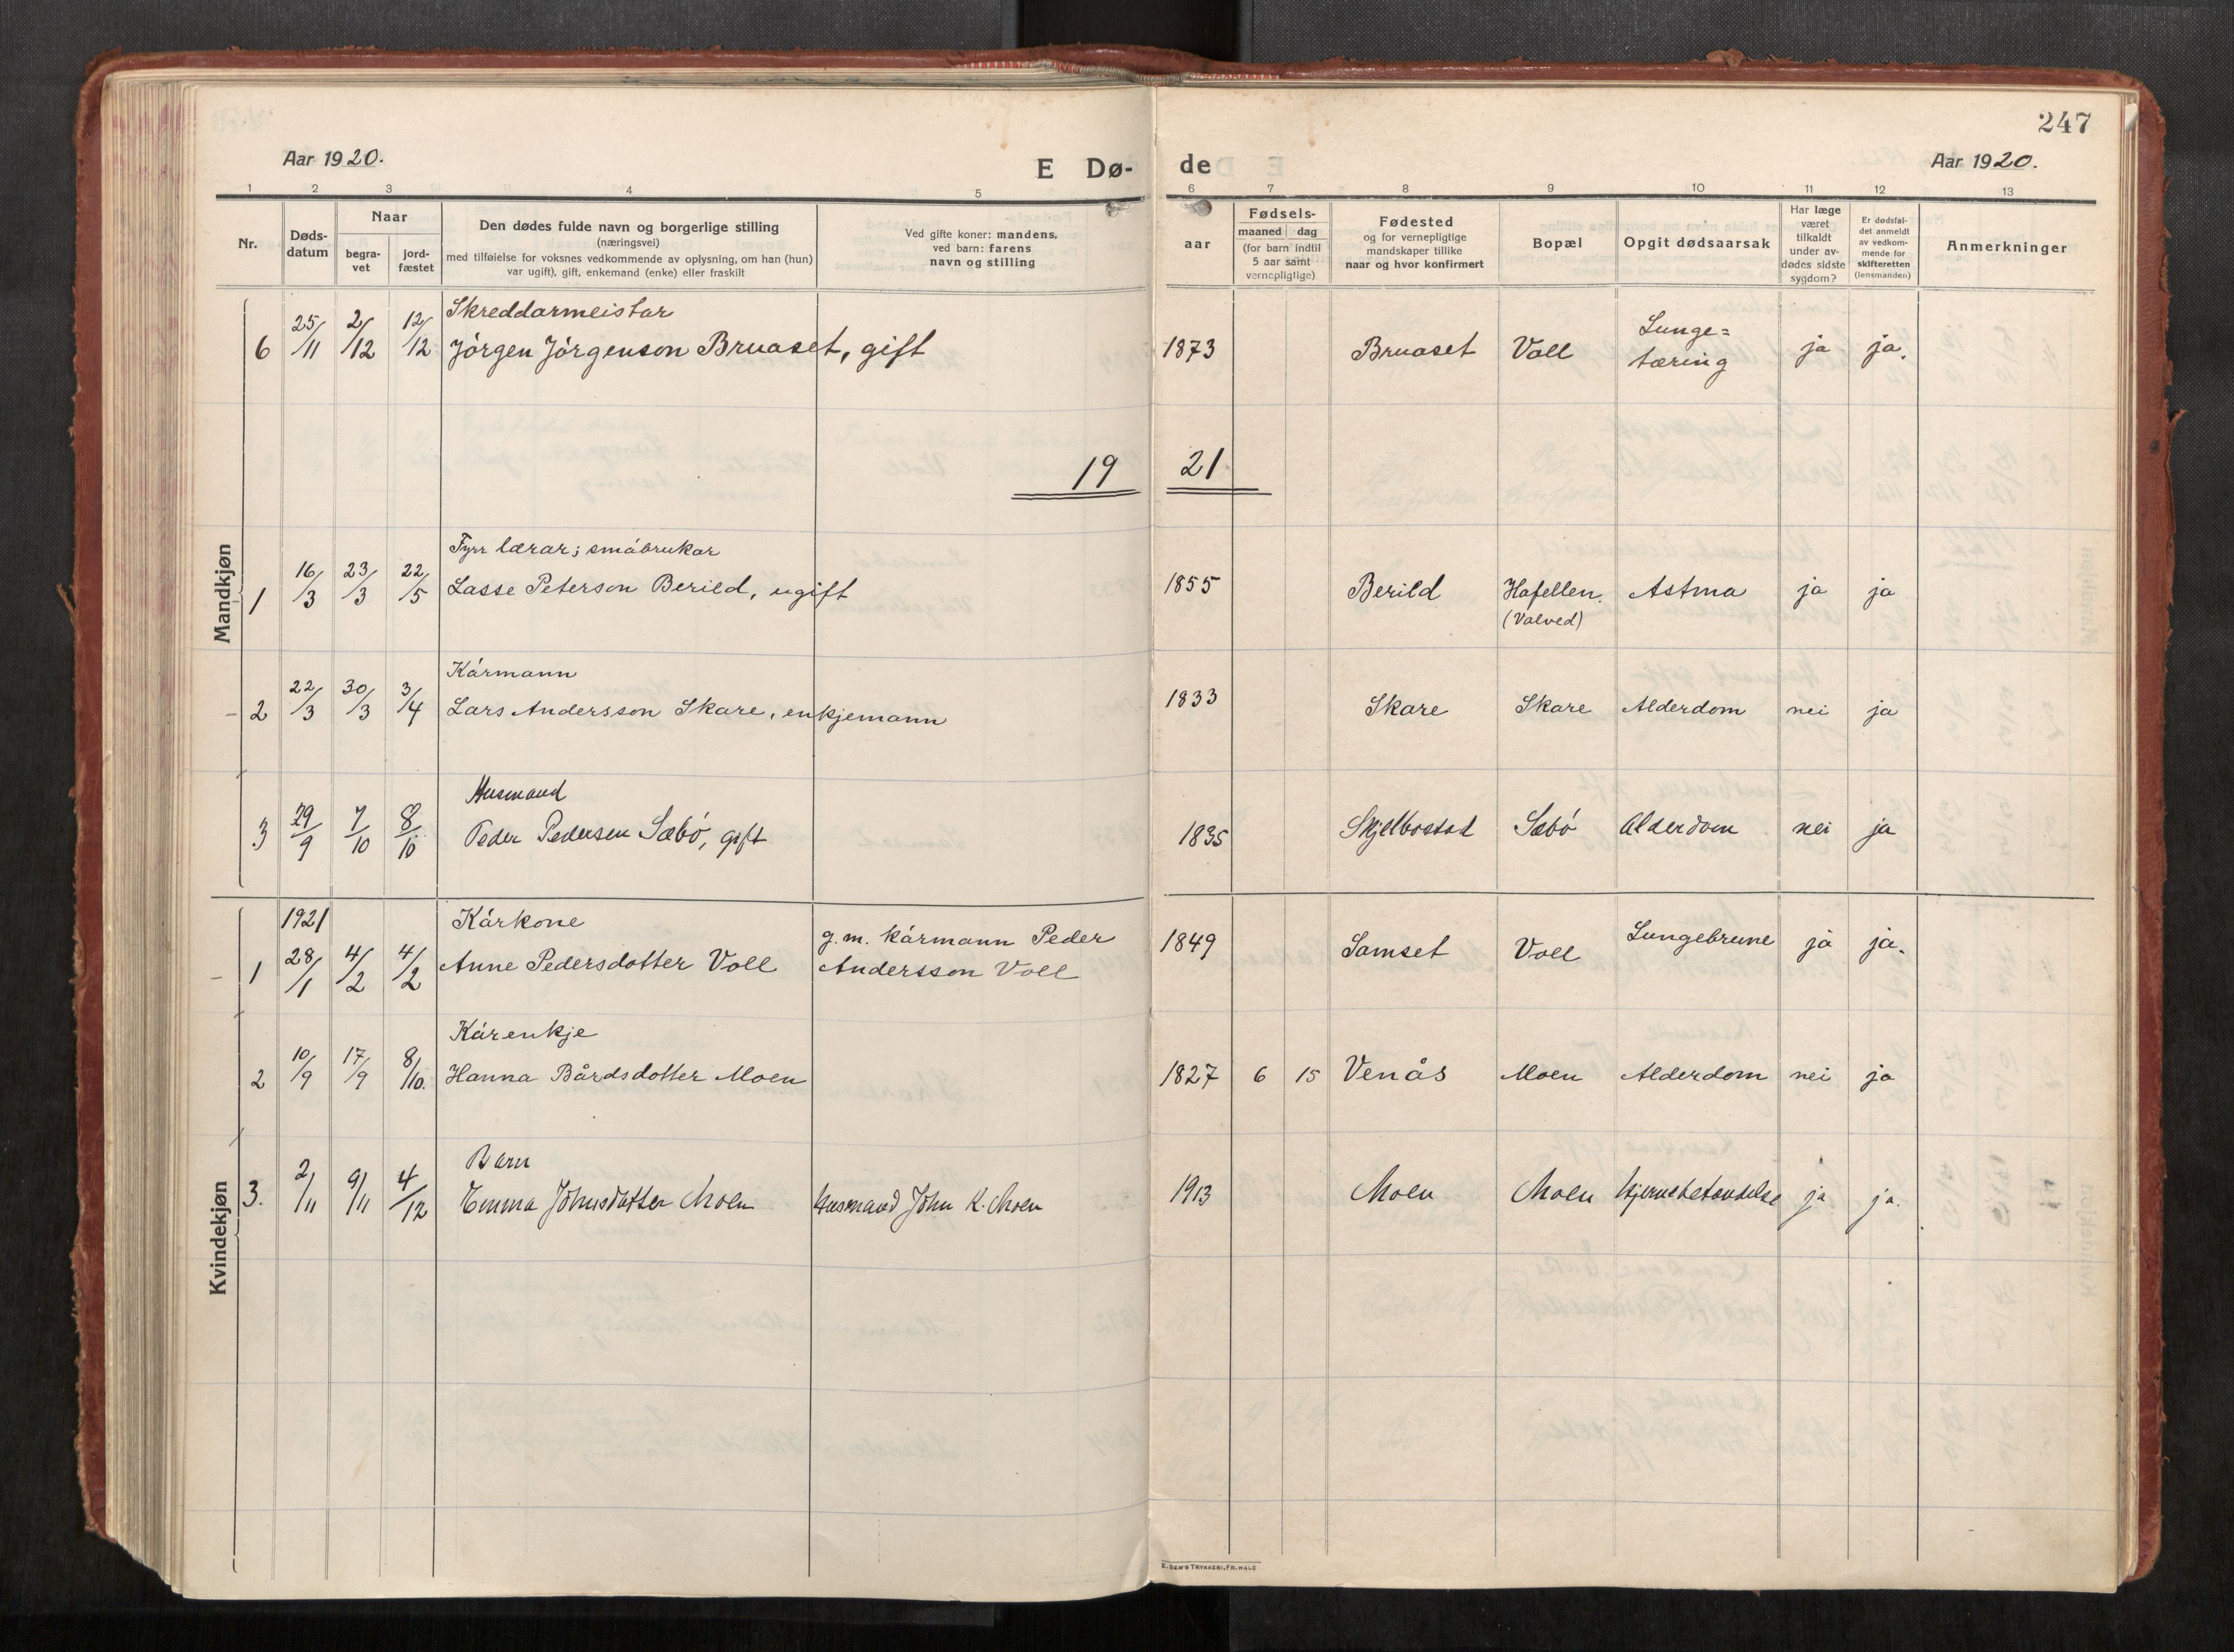 247
Aar 1920.
E Dø-
de
Aar 1920.
1 2 3 4 5 6 7 8 9 10 11 12 13
Nr.
Døds-
datum
Naar
begra-
vet
jord-
fæstet
Den dødes fulde navn og borgerlige stilling
(næringsvei)
med tilføielse for voksnes vedkommende av oplysning, om han (hun)
var ugift), gift, enkemand (enke) eller fraskilt
Ved gifte koner: mandens,
ved barn: farens
navn og stilling
aar
Fødsels-
maaned dag
(for barn indtil
5 aar samt
vernepligtige)
Fødested
og for vernepligtige
mandskaper tillike
naar og hvor konfirmert
Bopæl
Opgit dødsaarsak
Har læge
været
tilkaldt
under av-
dødes sidste
sygdom?
Er dødsfal-
det anmeldt
av vedkom-
mende for
skifteretten
(lensmanden)
Anmerkninger
Skreddarmeistar
6 25/11 2/12 12/12 Jörgen Jörgenson Bruaset, gift 1873 Bruaset Voll Lunge=
tæring ja ja.
19 21
Mandkjøn
Fyrr lærar; småbrukar
1 16/3 23/3 22/5 Lasse Peterson Berild, ugift 1855 Berild Hafellen. Astma ja ja
(Valved)
Kårmann
2 22/3 30/3 3/4 Lars Andersson Skare, enkjemann 1833 Skare Skare Alderdom nei ja
Husmand
3 29/9 7/10 8/10 Peder Pedersen Sæbö, gift 1835 Skjelbostad Sæbö Alderdom nei ja
Kvindekjøn
1921 Kårkone g.m. kårmann Peder
1 28/1 4/2 4/2 Anne Pedersdotter Voll Andersson Voll 1849 Samset Voll Lungebrune ja ja.
Kårenkje
2 10/9 17/9 8/10. Hanna Bårdsdotter Moen 1827 6 15 Venås Moen Alderdom nei ja
Barn
3. 2/11 9/11 4/12 Emma Johnsdatter Moen Husmand John K. Moen 1913 Moen Moen Hjernebetændelse ja ja.
E. SEM'S TRYKKERI, FR.HALD